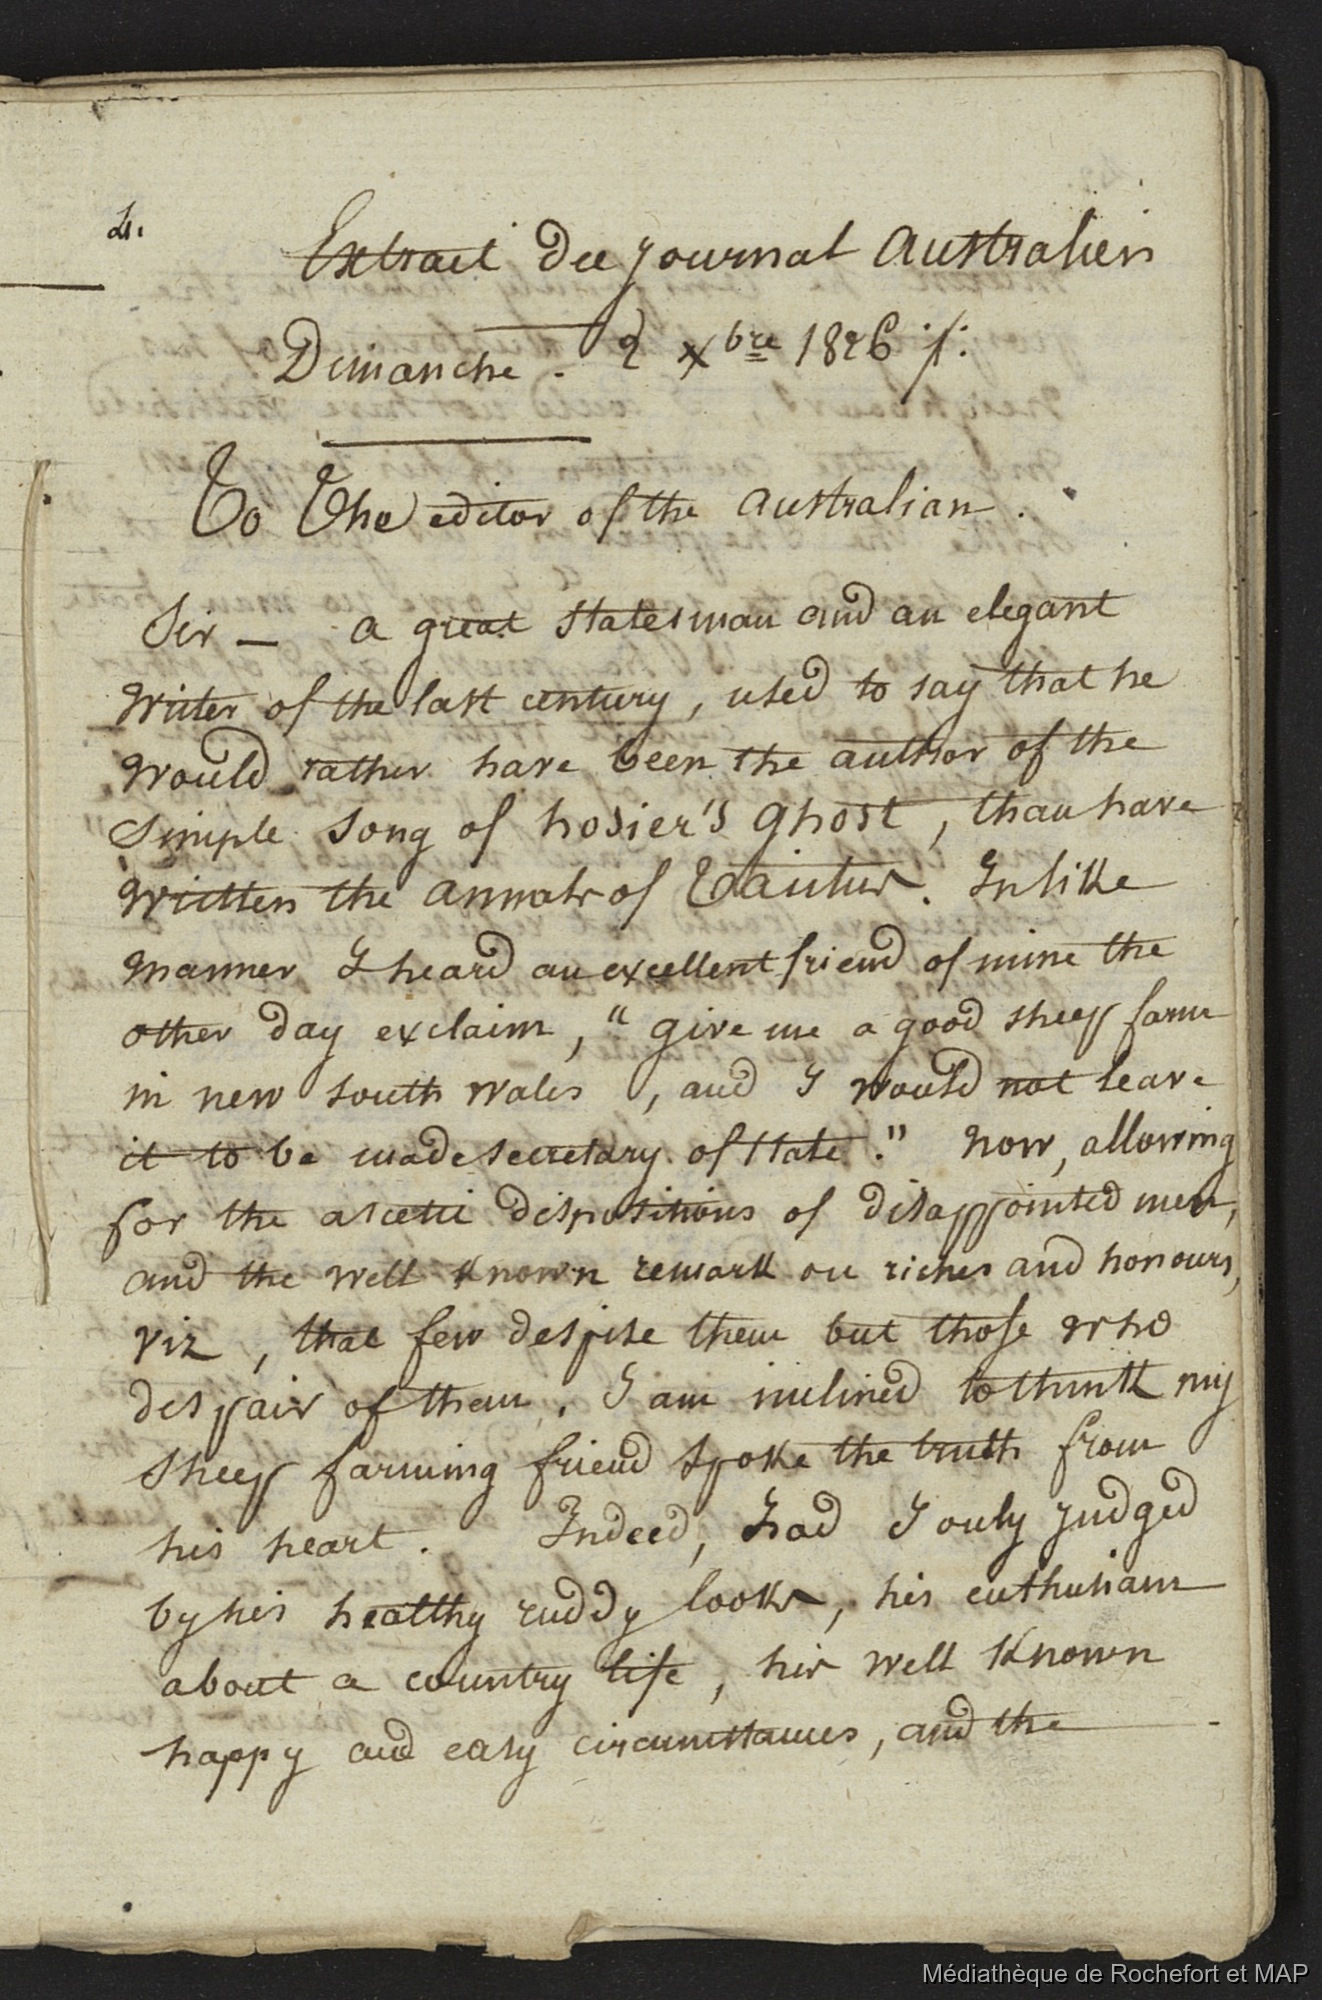 4.
Extrait du journal Australien
Dimanche. 2 Xbre 1826 /:
To The editor of the australian.
Sir — a great statesman and an elegant
writer of the last century, used to say that he
would rather have been the author of the
simple song of hosier's ghost, than have
written the annals of Tacitus. In like
manner I heard an excellent friend of mine the
other day exclaim, "give me a good sheep farm
in new south wales, and I would not leave
it to be made secretary of state." now, allowing
for the ascetic dispositions of disappointed men,
and the well known remark on riches and honours,
viz, that few despise them but those who
despair of them, I am inclined to think my
sheep farming friend spoke the truth from
his heart. Indeed, had I only judged
by his healthy ruddy looks, his enthusiasm
about a country life, his well known
happy and easy circumstances, and the
Médiathèque de Rochefort et MAP